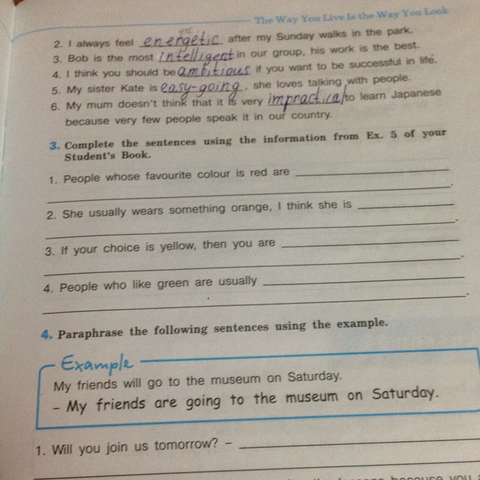 The Way You Live Is the Way You Look
2. I always feel energetic after my Sunday walks in the park.
3. Bob is the most intelligent in our group, his work is the best.
4. I think you should be ambitious if you want to be successful in life.
5. My sister Kate is easy-going, she loves talking with people.
6. My mum doesn't think that it is very impractical to learn Japanese
because very few people speak it in our country.
3. Complete the sentences using the information from Ex. 5 of your
Student's Book.
1. People whose favourite colour is red are
2. She usually wears something orange, I think she is
3. If your choice is yellow, then you are
4. People who like green are usually
4. Paraphrase the following sentences using the example.
Example
My friends will go to the museum on Saturday.
– My friends are going to the museum on Saturday.
1. Will you join us tomorrow? –
because you